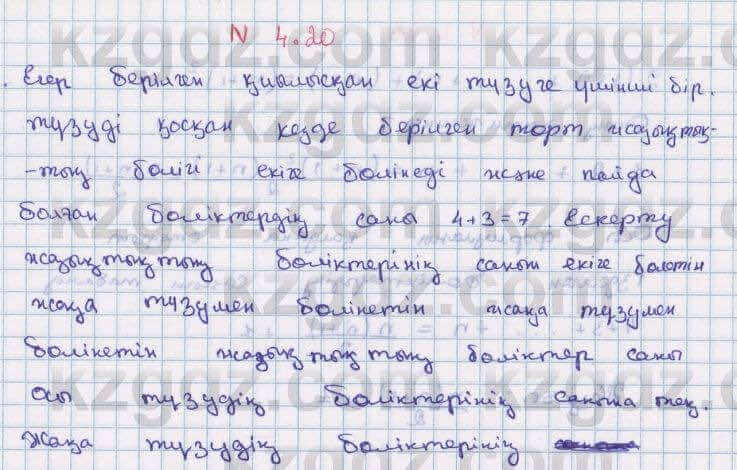 N 4.20
Егер берілген қиылысқан екі түзуге үшінші бір.
түзуді қосқан кезде берілген төрт жазықтық-
-тың бөлігі екіге бөлінеді және пайда
болған бөліктердің саны 4+3=7 Ескерту
жазықтықтың бөліктерінің санын екіге бөлетін
жаңа түзумен бөлінетін жаңа түзумен
бөлінетін жазықтықтың бөліктер саны
осы түзудің бөліктерінің санына тең.
Жаңа түзудің бөліктерінің